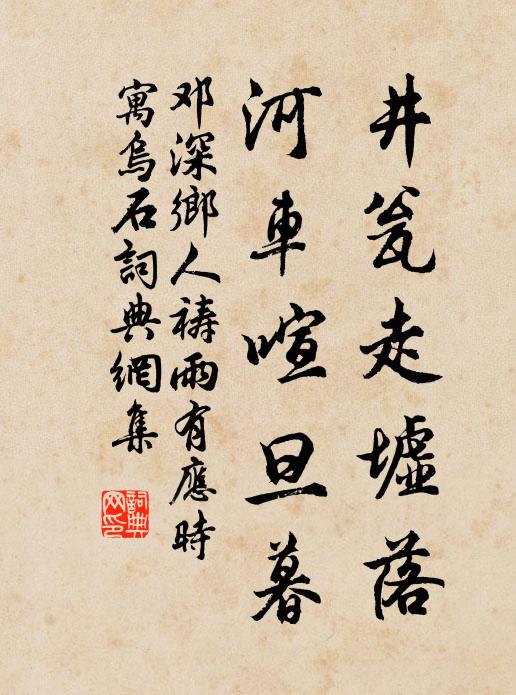 井瓮走墟落
河車喧旦暮
邓深鄉人禱雨有應時
寓烏石詞典網集
詞典
网印